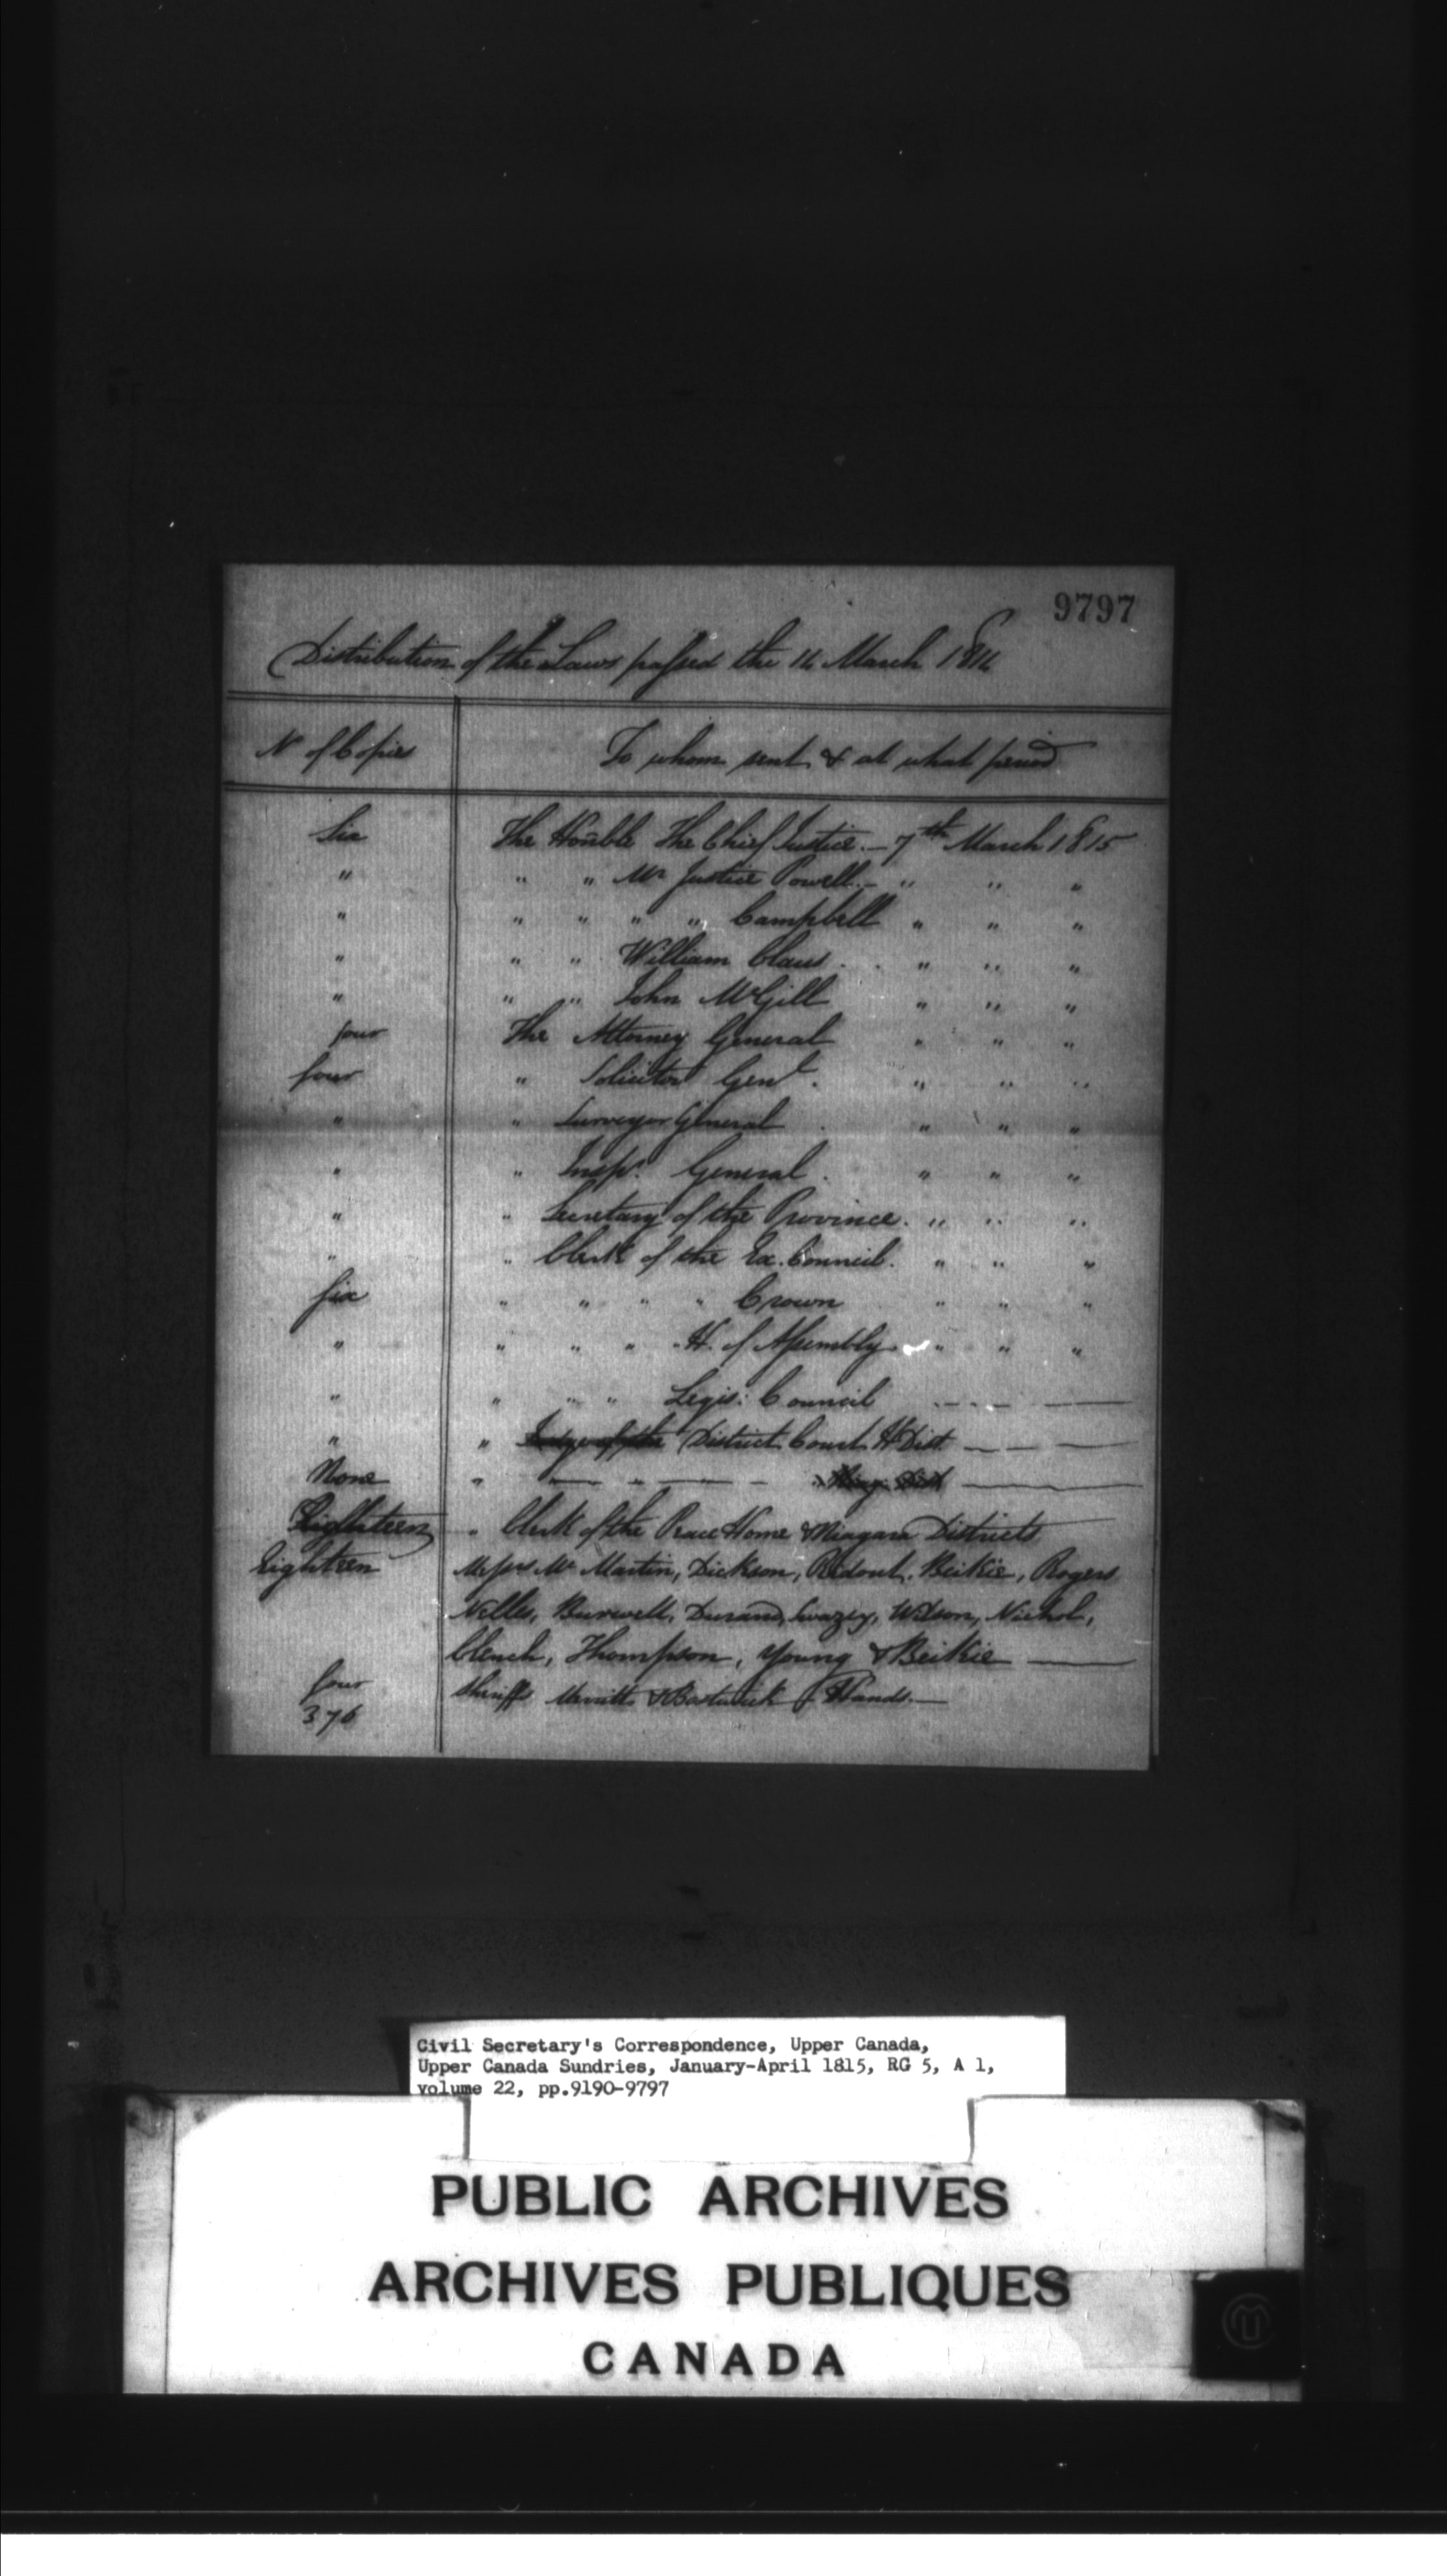 9797
Distribution of the Laws passed the 14 March 1814
No of Copies To whom sent & at what period
Six The Honble The Chief Justice. — 7th March 1815
" " " Mr Justice Powell. — " " "
" " " " " Campbell " " "
" " " William Claus . . " " "
" " " John McGill " " "
four The Attorney General " " "
four " Solicitor Genl. " " "
" " Surveyor General . " " "
" " Inspr. General . " " "
" " Secretary of the Province. " " "
" " Clerk of the Ex. Council. " " "
Six " " " " Crown " " "
" " " " H. of Assembly " " "
" " " " Legis: Council
" " Judge of the District Court H Dist. — — —
None " — " — — — " Niag. Dist ———
Eighteen " Clerk of the Peace Home & Niagara Districts
Eighteen Messrs Mc Martin, Dickson, Ridout, Beikie, Rogers
Nelles, Burwell, Durand, Swazey, Wilson, Nichol,
Clench, Thompson, Young & Beikie ———
four Sheriffs Merritt & Bostwick Hands. —
376
Civil Secretary's Correspondence, Upper Canada,
Upper Canada Sundries, January-April 1815, RG 5, A 1,
volume 22, pp.9190-9797
PUBLIC ARCHIVES
ARCHIVES PUBLIQUES
CANADA